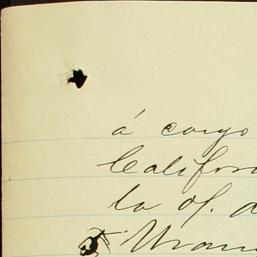 á cargo
Califor
la of. d